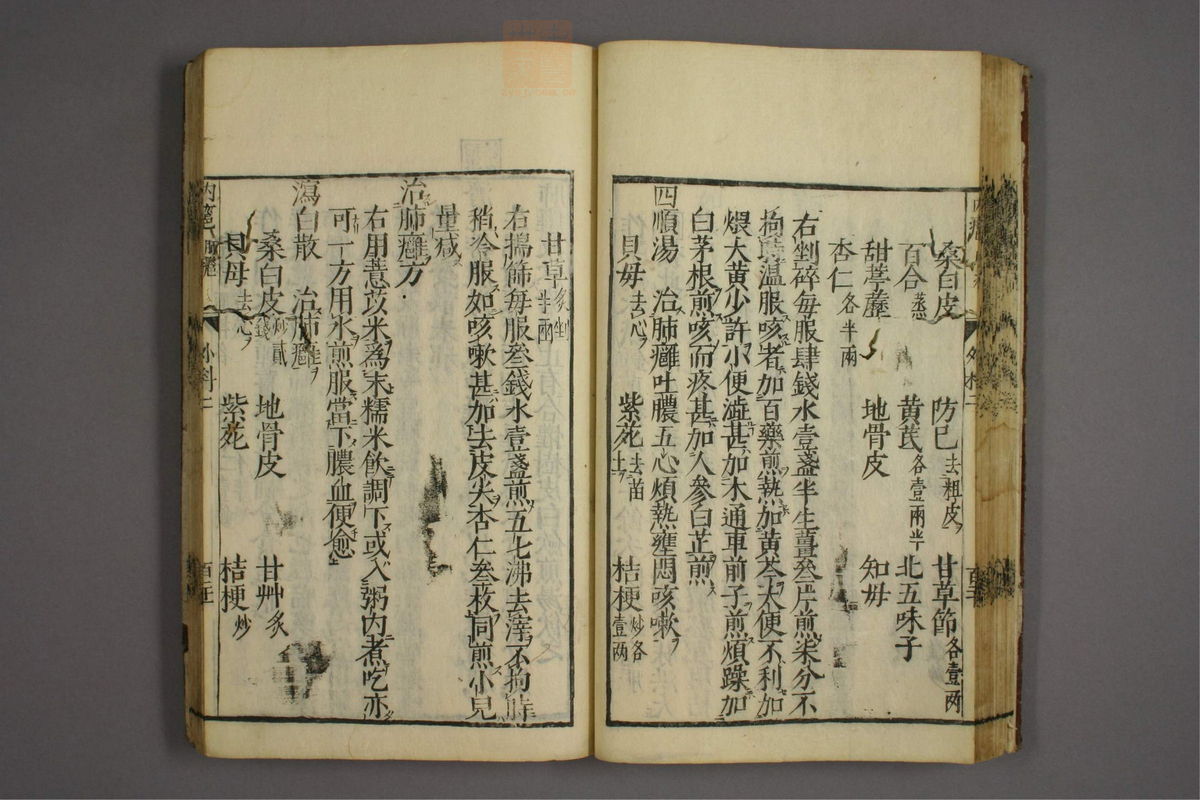 桑白皮 防巳去粗皮 甘草節各壹兩
百合蒸 黄芪各壹兩半 北五味子
甜葶藶 地骨皮 知母
杏仁各半兩
右剉碎每服肆錢水壹盞半生薑叁片煎柒分不
拘時温服咳者加百藥煎熱加黄芩大便不利加
煨大黄少許小便澁甚加木通車前子煎煩躁加
白茅根煎咳而疼甚加人參白芷煎
四順湯 治肺癰吐膿五心煩熱壅悶咳嗽
貝母去心 紫菀去苗土 桔梗炒各壹两
甘草炙剉半兩
右搗篩每服叁錢水壹盞煎五七沸去滓不拘時
稍冷服如咳嗽甚加去皮尖杏仁叁枚同煎小兒
量减
治肺癰方
右用薏苡米爲末糯米飲調下或入粥内煮吃亦
可一方用水煎服當下膿血便愈
瀉白散 治肺癰
桑白皮炒貳錢 地骨皮 甘艸炙
貝母去心 紫菀 桔梗炒
外科二